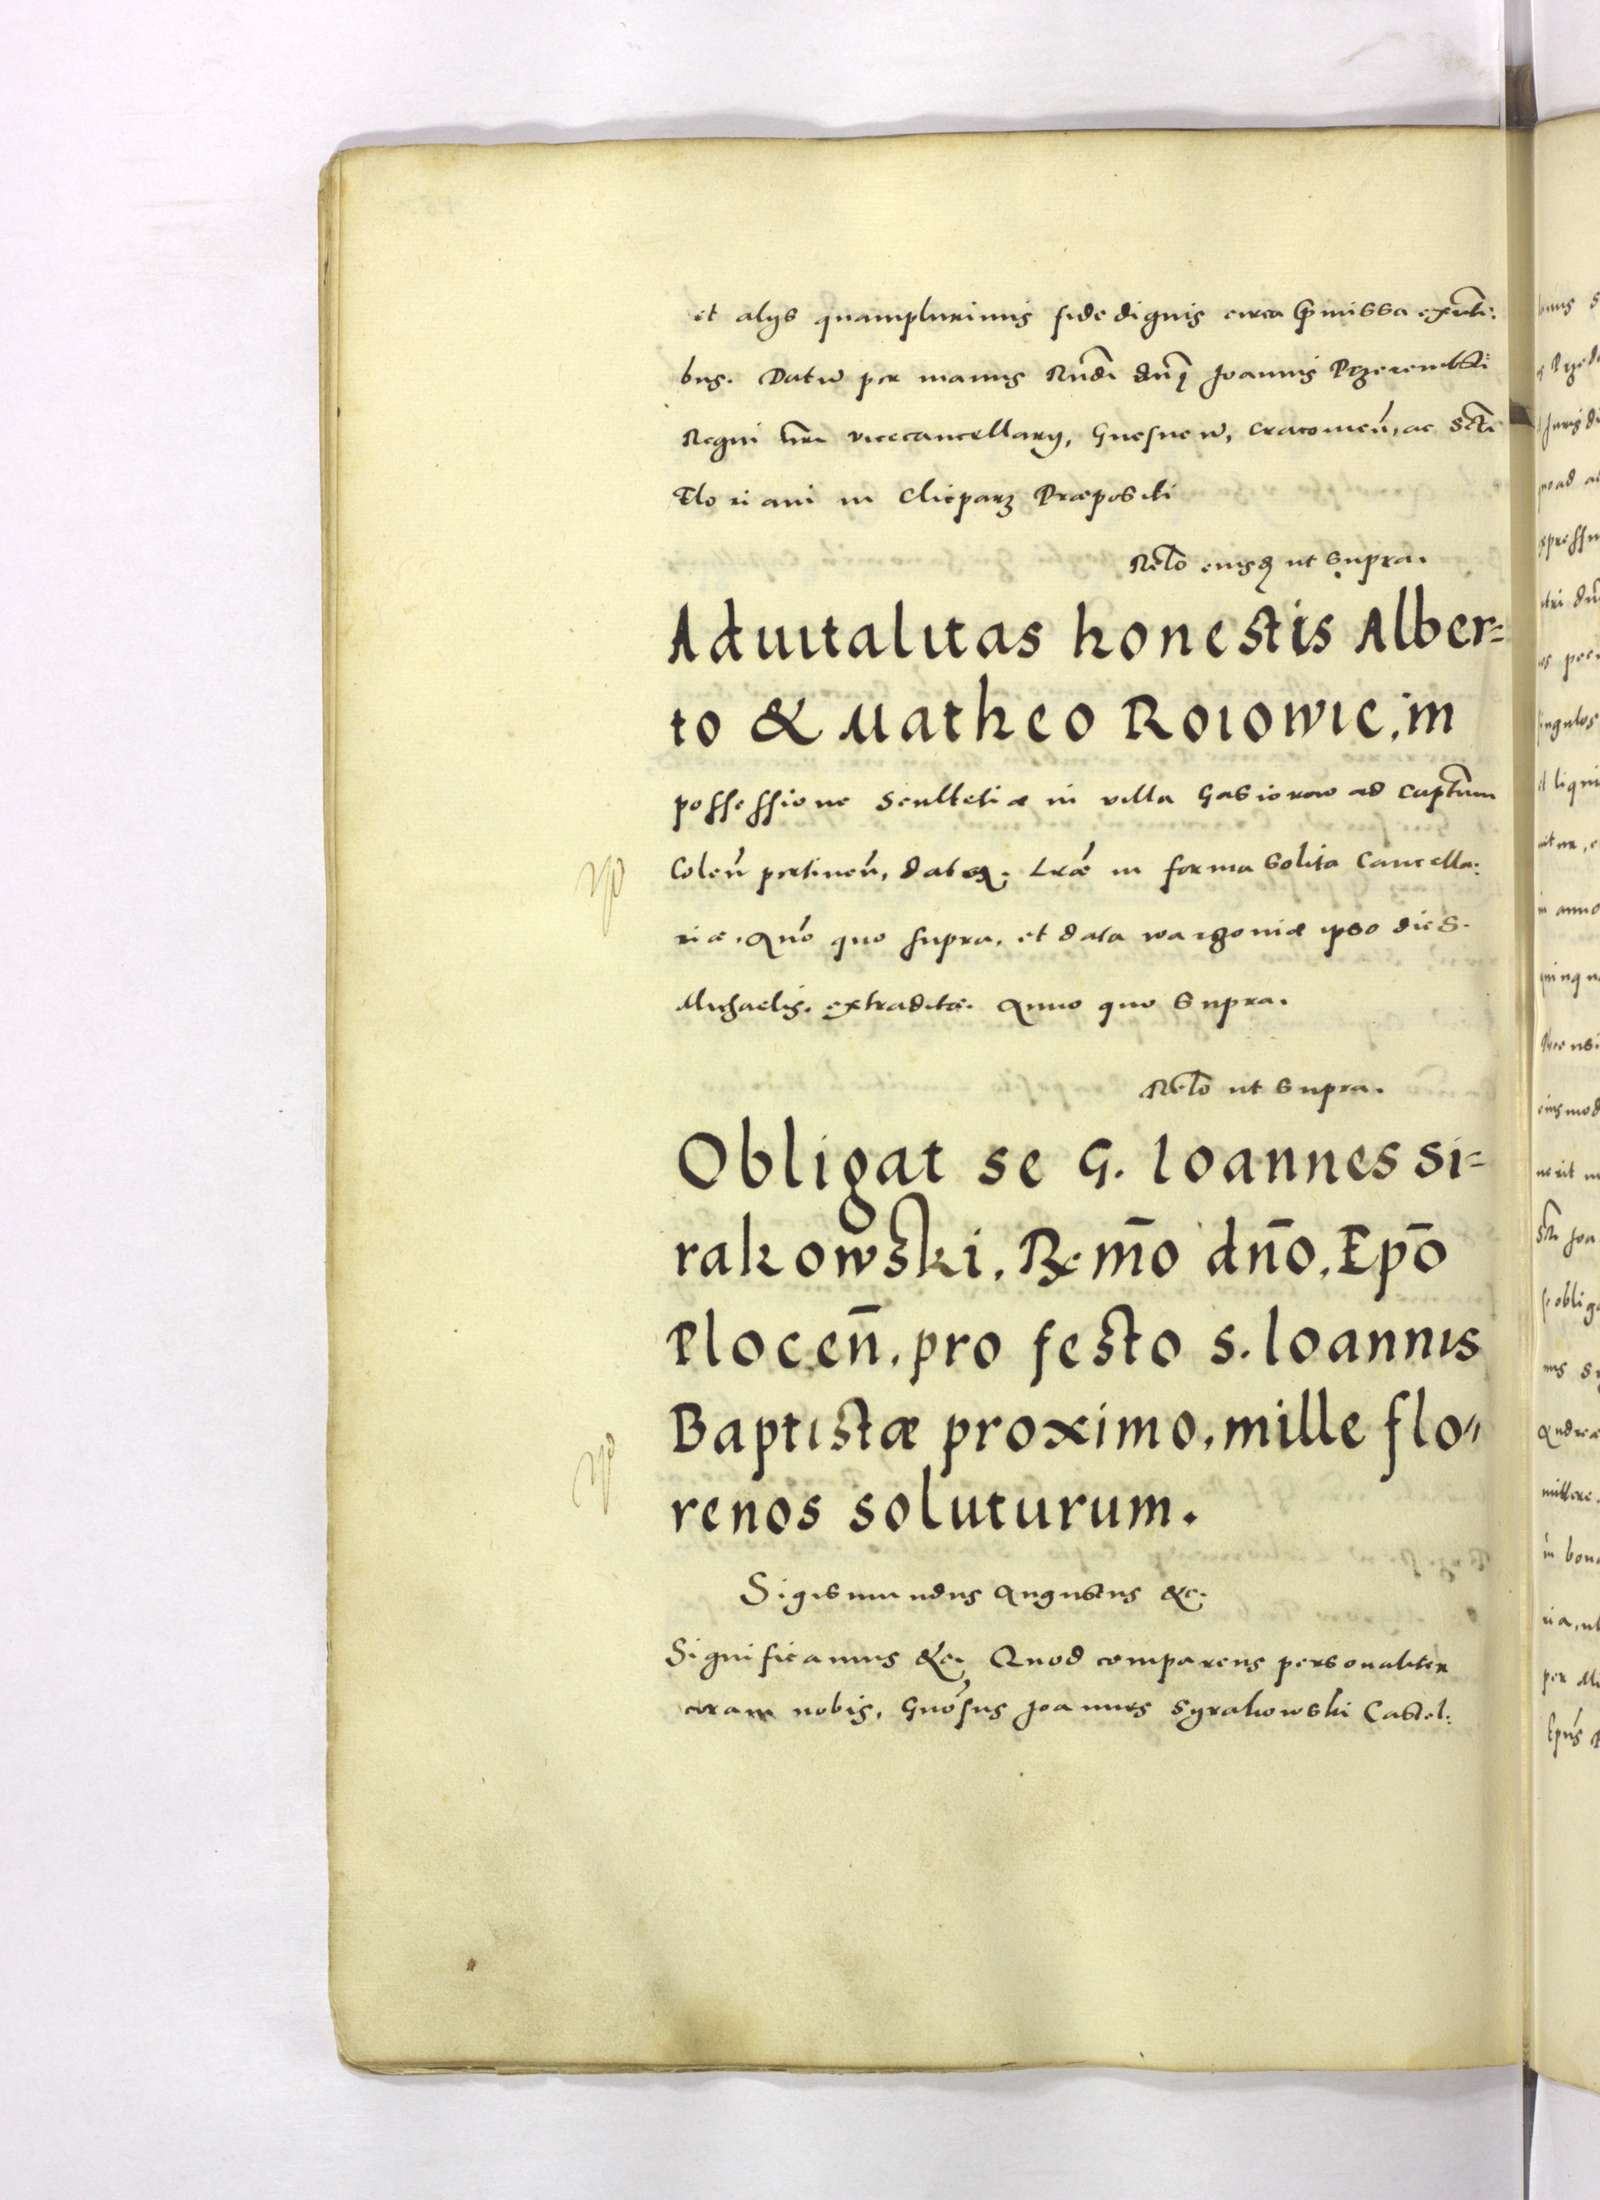 et alijs quampluximis fide dignis circa p̃missa exn̄ti:
bus. Datū per manus Rn̄di dn̄i Joannis Przerembski
Regni n̄ri vicecancellarij, Gnesneñ, Cracovieñ, ac Scti
Floriani in Clieparz Præpositi
Relõ eiusdem ut supra.
Aduitalitas honestis Alber=
to & Matheo Roiowic, in
possessione scultetiæ in villa Gasiorow ad Capt̃um
Coleñ pertineñ, datæ. Lræ in forma solita Cancella:
riæ. Anõ quo supra, et data wargoviæ ipso die S.
Michaelis. extraditæ. Anno quo supra.
Relõ ut supra.
Obligat se G. Ioannes Si=
rakowski, R.mõ dño, Epõ
Ploceñ, pro festo S. Ioannis
Baptistæ proximo, mille flo=
renos soluturum.
Sigismundus Augustus &c.
Significamus &c. Quod comparens personaliter
coram nobis, Gnõsus Joannes Syrakowski Castel: